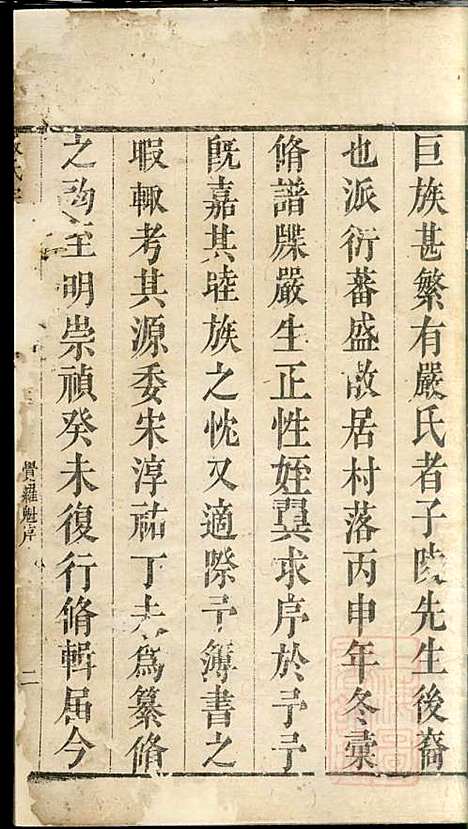 巨族甚繁有嚴氏者子陵先生後裔
也派衍蕃盛散居村落丙申年冬彙
脩譜牒嚴生正性姪巽求序於予予
旣嘉其睦族之忱又適際予簿書之
暇輙考其源委宋淳祐丁未爲纂脩
之始至明崇禎癸未復行脩輯屆今
覺羅魁序
二